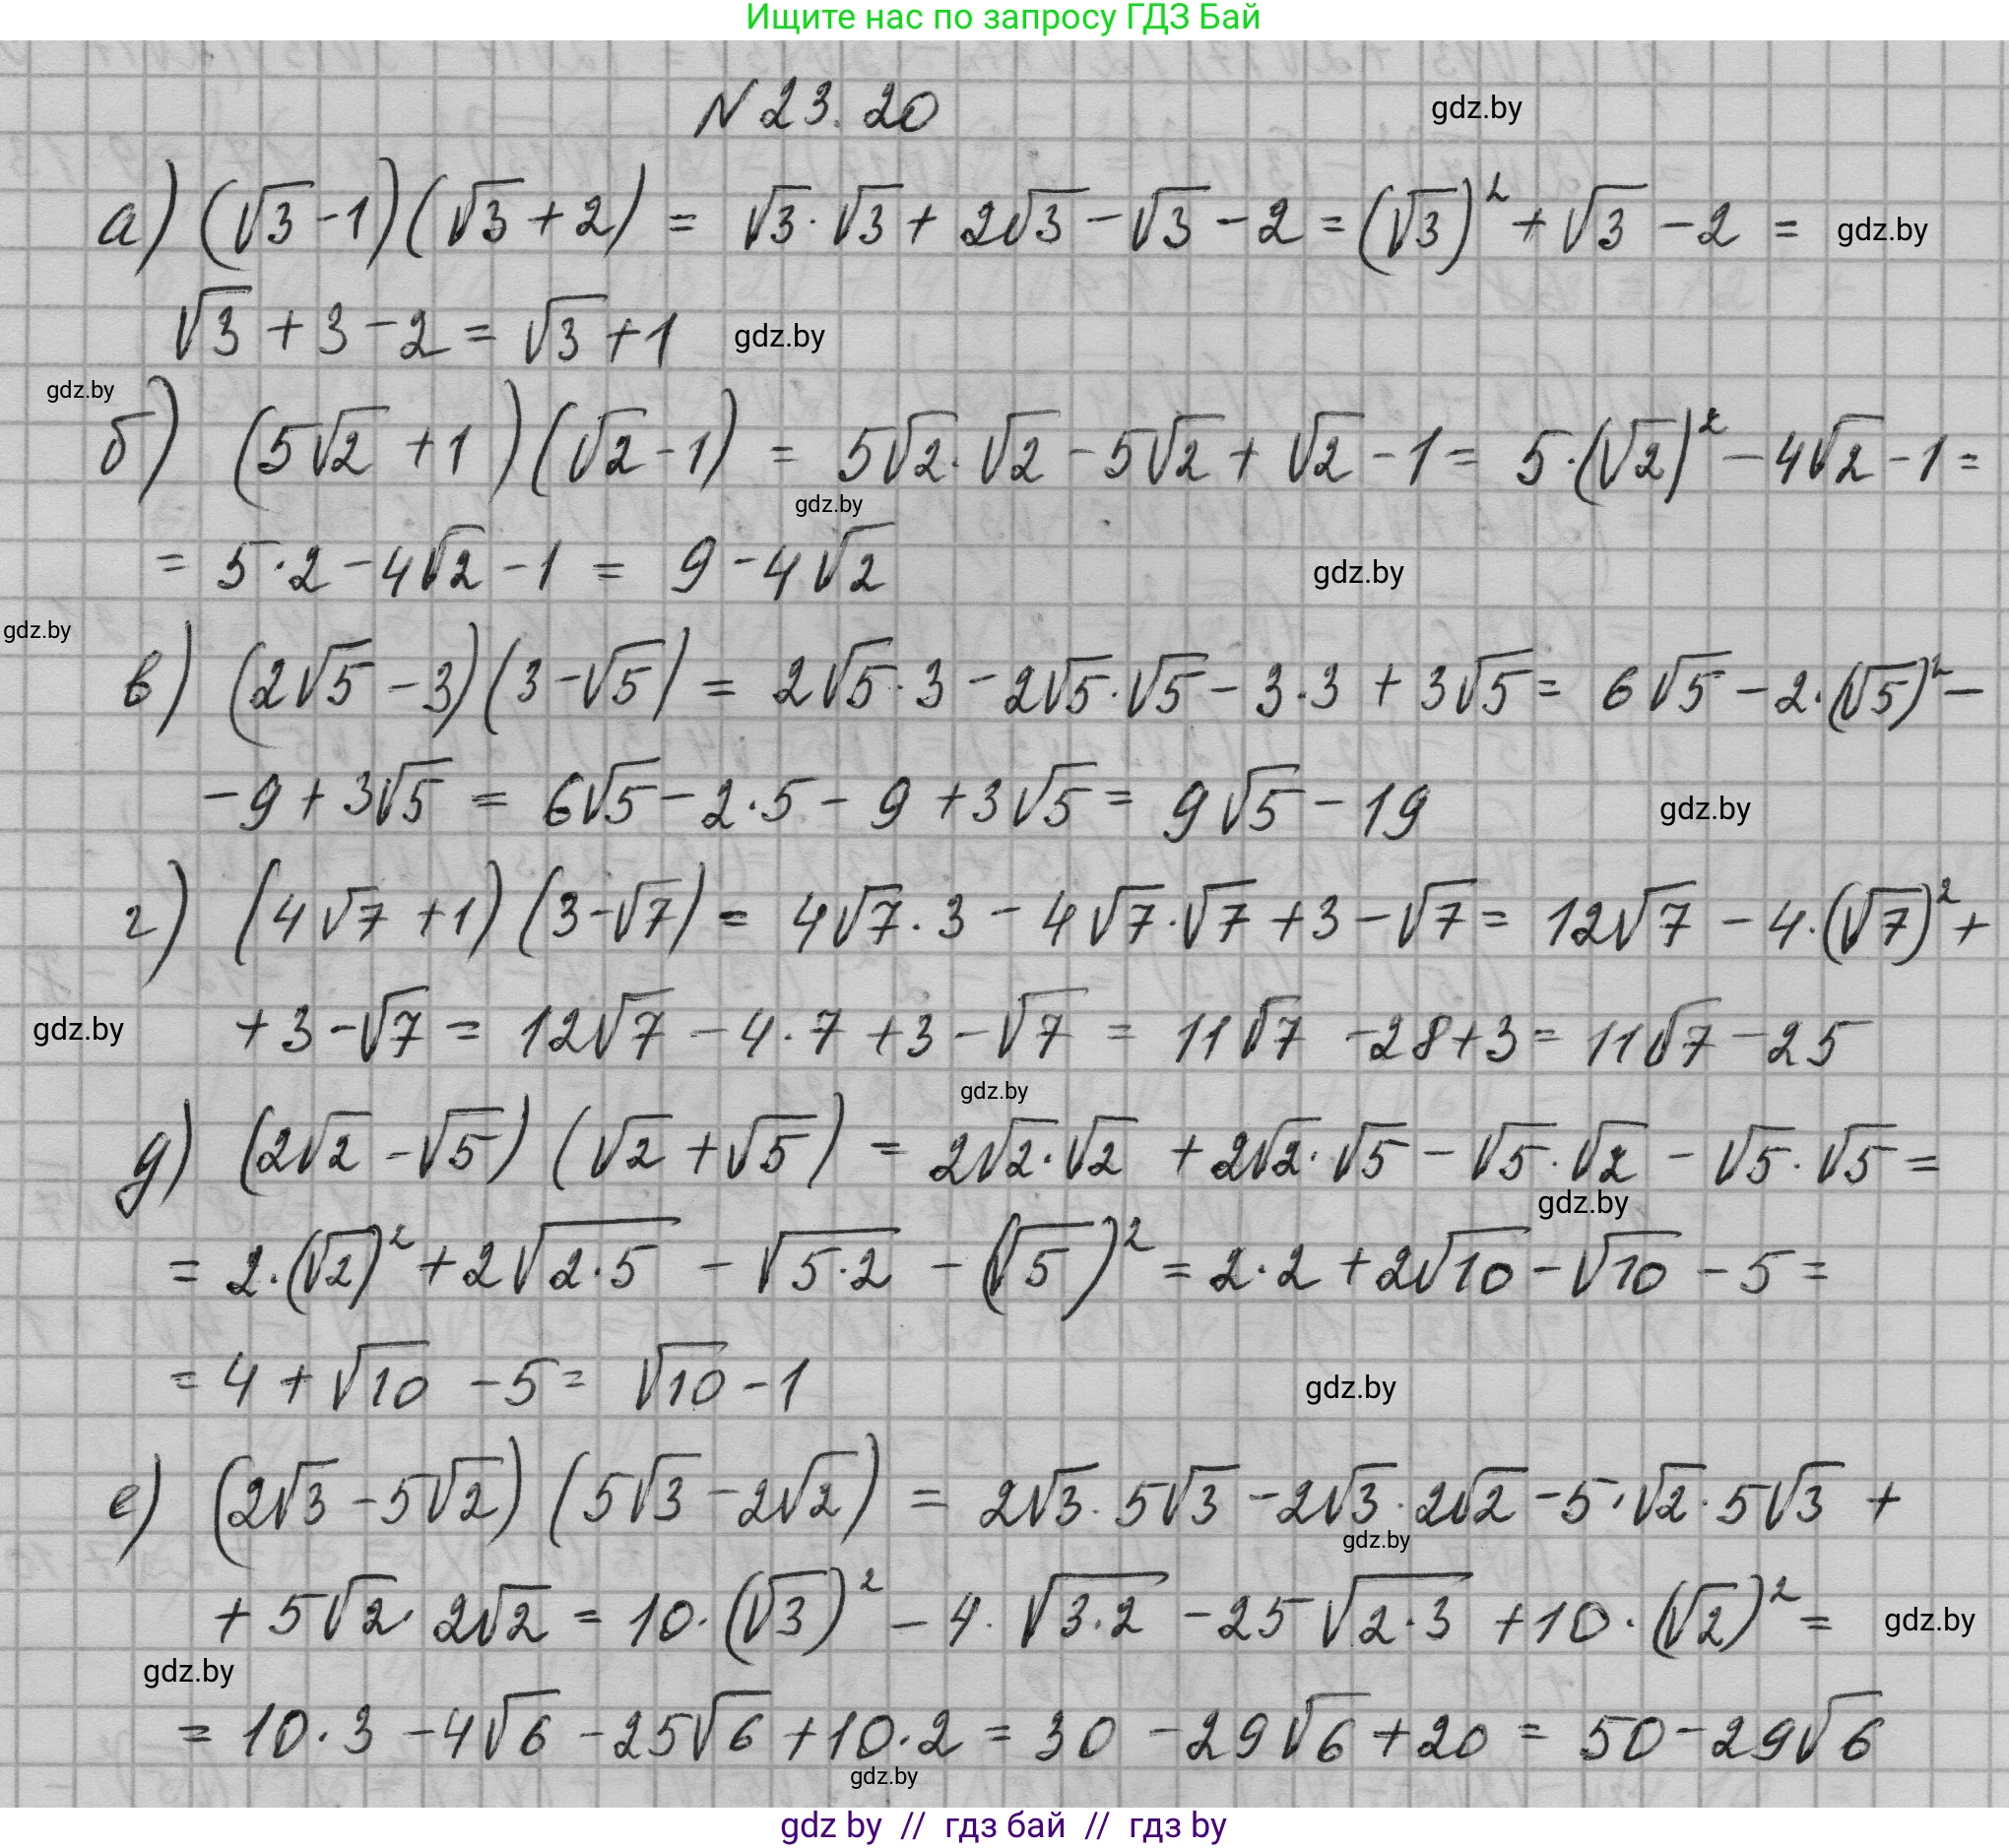 Ищите нас по запросу ГДЗ Бай
N 23.20 gdz.by
а) (√3-1)(√3+2) = √3·√3+2√3-√3-2=(√3)²+√3-2= gdz.by
√3+3-2=√3+1 gdz.by
gdz.by
б) (5√2+1)(√2-1) = 5√2·√2-5√2+√2-1= 5·(√2)²-4√2-1=
gdz.by
= 5·2-4√2-1 = 9-4√2 gdz.by
gdz.by
в) (2√5-3)(3-√5) = 2√5·3-2√5·√5-3·3+3√5= 6√5-2·(√5)²-
-9+3√5 = 6√5-2·5-9+3√5= 9√5-19 gdz.by
г) (4√7+1)(3-√7)= 4√7·3-4√7·√7+3-√7= 12√7-4·(√7)²+
gdz.by +3-√7= 12√7-4·7+3-√7= 11√7-28+3= 11√7-25
gdz.by
д) (2√2-√5)(√2+√5) = 2√2·√2+2√2·√5-√5·√2-√5·√5=
gdz.by
= 2·(√2)²+2√2·5-√5·2-(√5)²=2·2+2√10-√10-5=
= 4+√10-5= √10-1 gdz.by
е) (2√3-5√2)(5√3-2√2) = 2√3·5√3-2√3·2√2-5·√2·5√3+
gdz.by
+5√2·2√2=10·(√3)²-4·√3·2-25√2·3+10·(√2)²= gdz.by
gdz.by
= 10·3-4√6-25√6+10·2=30-29√6+20= 50-29√6
gdz.by
gdz by // гдз бай // гдз by